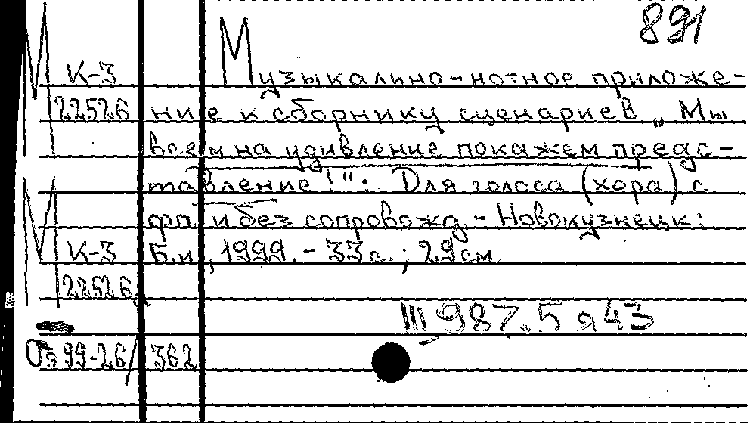 891
М К-3 Музыкально-нотное приложе-
22526 ние к сборнику сценариев „Мы
всем на удивление покажем предс-
тавление!": Для голоса (хора) с
фп. и без сопровожд. - Новокузнецк:
М К-3 Б.и., 1999. - 33 с.; 29 см.
22526
III 987.5 я43
99-26/362